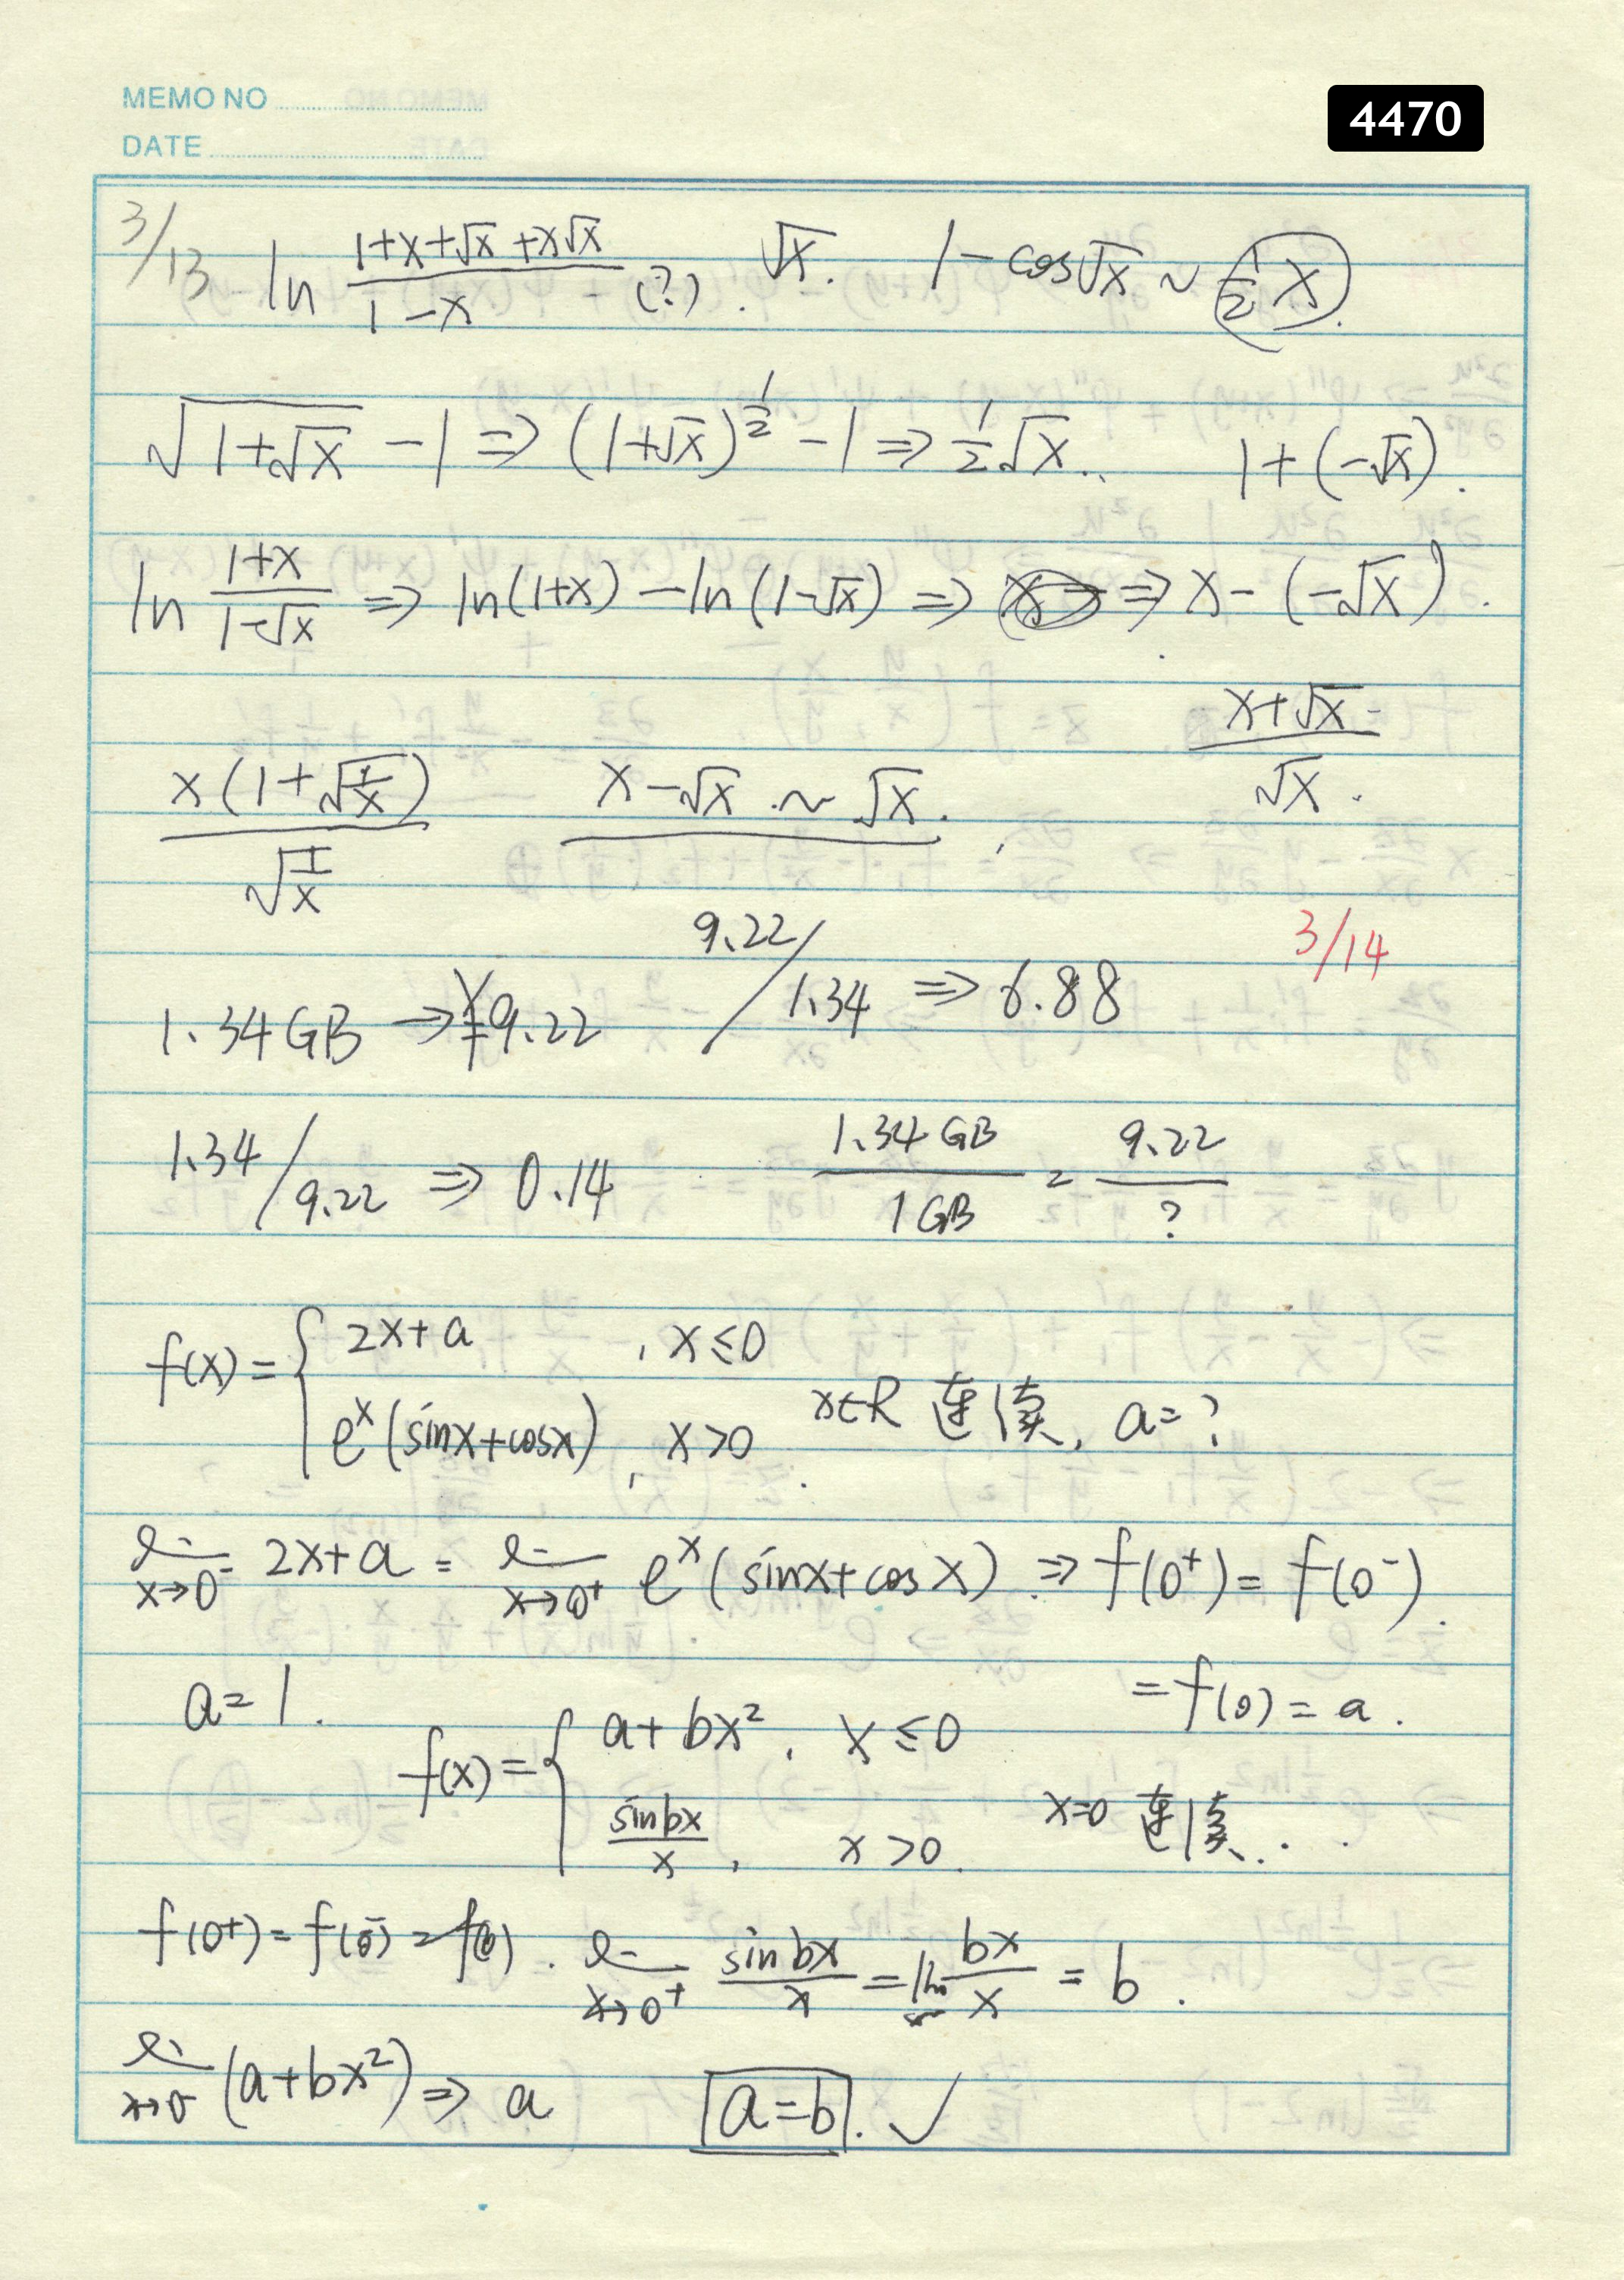 MEMO NO
DATE
4470
3/13 ln (1+x+√x+x√x)/(1-x) (?). √x. 1-cos√x ~ ½x.
√(1+√x) -1 ⇒ (1+√x)^½ -1 ⇒ ½√x. 1+(-√x).
ln (1+x)/(1-√x) ⇒ ln(1+x) -ln(1-√x) ⇒ ⇒ x-(-√x).
(x+√x)/√x.
x(1+√(1/x))/√(1/x) x-√x ~ √x.
3/14
1.34GB → ¥9.22 9.22/1.34 ⇒ 6.88
1.34/9.22 ⇒ 0.14 1.34GB/1GB = 9.22/?
f(x)={ 2x+a , x≤0
e^x(sinx+cosx), x>0. x∈R 连续, a=?
lim x→0⁻ 2x+a = lim x→0⁺ e^x(sinx+cosx) ⇒ f(0⁺)=f(0⁻).
a=1. =f(0)=a.
f(x)={ a+bx², x≤0
sinbx/x, x>0. x=0 连续.
f(0⁺)=f(0⁻)=f(0). lim x→0⁺ sinbx/x = lim bx/x = b.
lim x→0⁻ (a+bx²) ⇒ a a=b. ✓